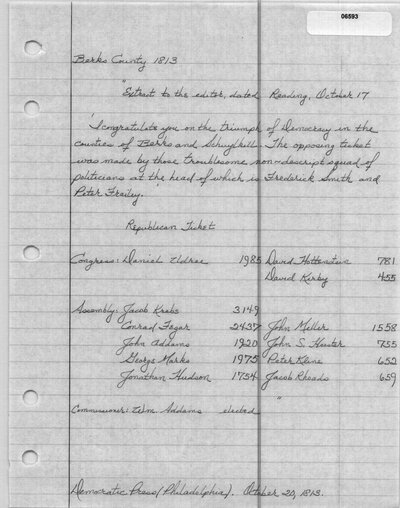 06593
Berks County 1813
"Extract to the editor, dated Reading, October 17
'I congratulate you on the triumph of Democracy in the
counties of Berks and Schuylkill. The opposing ticket
was made by those troublesome non-descript squad of
politicians at the head of which is Frederick Smith and
Peter Frailey.'
Republican Ticket
Congress: Daniel Udree 1985 David Hottenstein 781
David Kirby 455
Assembly: Jacob Krebs 3149
Conrad Fegar 2437 John Miller 1558
John Addams 1920 John S. Hiester 755
George Marks 1975 Peter Kline 652
Jonathan Hudson 1754 Jacob Rhoads 659
Commissioner: Wm. Addams elected "
Democratic Press (Philadelphia). October 20, 1813.